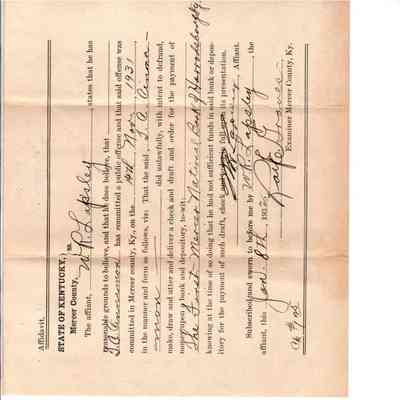 Affidavit.
STATE OF KENTUCKY, } ss.
Mercer County,
The affiant, W. P. Lapsley, states that he has
reasonable grounds to believe, and that he does believe, that
has committed a public offense and that said offense was
committed in Mercer county, Ky., on the 4th Nov. 1931
in the manner and form as follows, viz: That the said
did unlawfully, with intent to defraud,
make, draw and utter and deliver a check and draft and order for the payment of
money upon a bank and depository, to-wit:
The First Mercer National Bank of Harrodsburg, Ky
knowing at the time of so doing that he had not sufficient funds in said bank or depos-
itory for the payment of such draft, check in full upon its presentation.
Affiant.
Subscribed and sworn to before me by W. P. Lapsley, the
affiant, this Jan. 8th, 193
Examiner Mercer County, Ky.